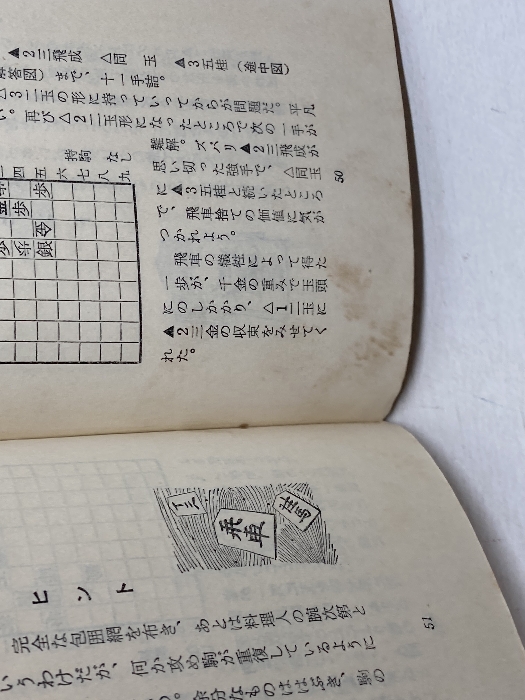 ▲２三飛成　△同　玉　▲３五桂（途中図）
解答図）まで、十一手詰。
△３二玉の形に持っていってからが問題だ。平凡
い。再び△２二玉形になったところで次の一手が
難解。ズバリ▲２三飛成が
思い切った強手で、△同玉
に▲３五桂と続いたところ
で、飛車捨ての価値に気が
つかれよう。
飛車の犠牲によって得た
一歩が、千金の重みで玉頭
にのしかかり、△１二玉に
▲２三金の収束をみせてく
れた。
持駒　なし
四五六七八九
歩
歩
金
銀
50
飛車
桂馬
ヒント
完全な包囲網を布き、あとは料理人の腕次第と
いうわけだが、何か攻め駒が重複しているように
う。余分なものははぶき、駒の
51